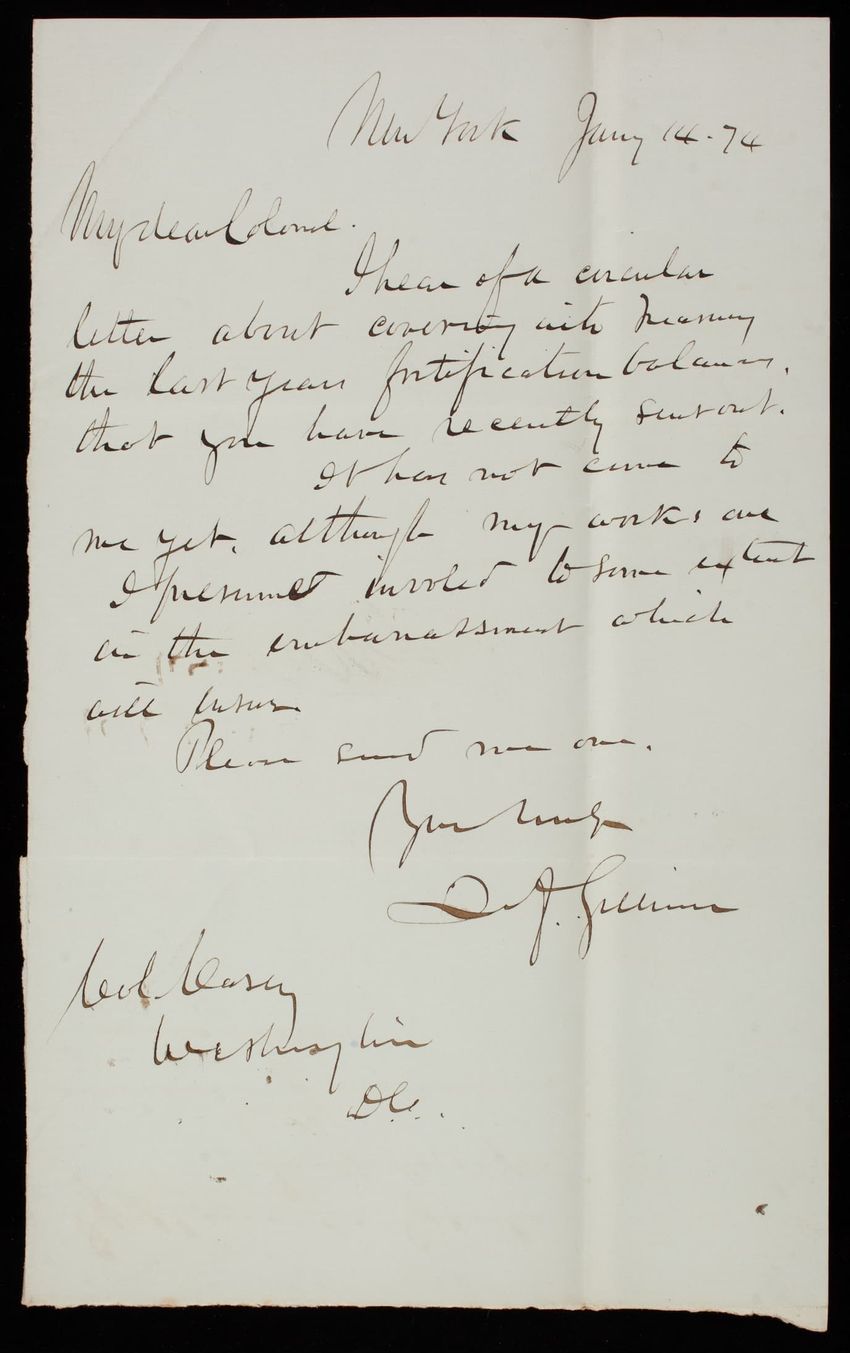 New York Jany 14 - 74
My dear Colonel.
I hear of a circular
letter about covering into Treasury
the last years fortification balances,
that you have recently sent out.
It has not come to
me yet, although my works are
I presume involed to some extent
in the embarrassment which
will ensue.
Please send me one.
Yours truly
Q. A. Gillmore
Col. Casey
Washington
D.C.